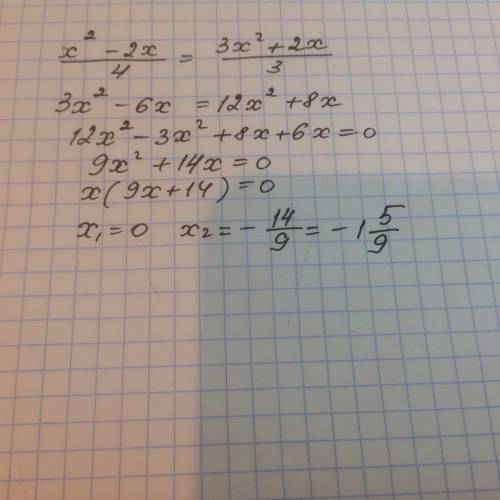 x² - 2x / 4 = 3x² + 2x / 3
3x² - 6x = 12x² + 8x
12x² - 3x² + 8x + 6x = 0
9x² + 14x = 0
x(9x + 14) = 0
x₁ = 0 x₂ = - 14/9 = - 1 5/9